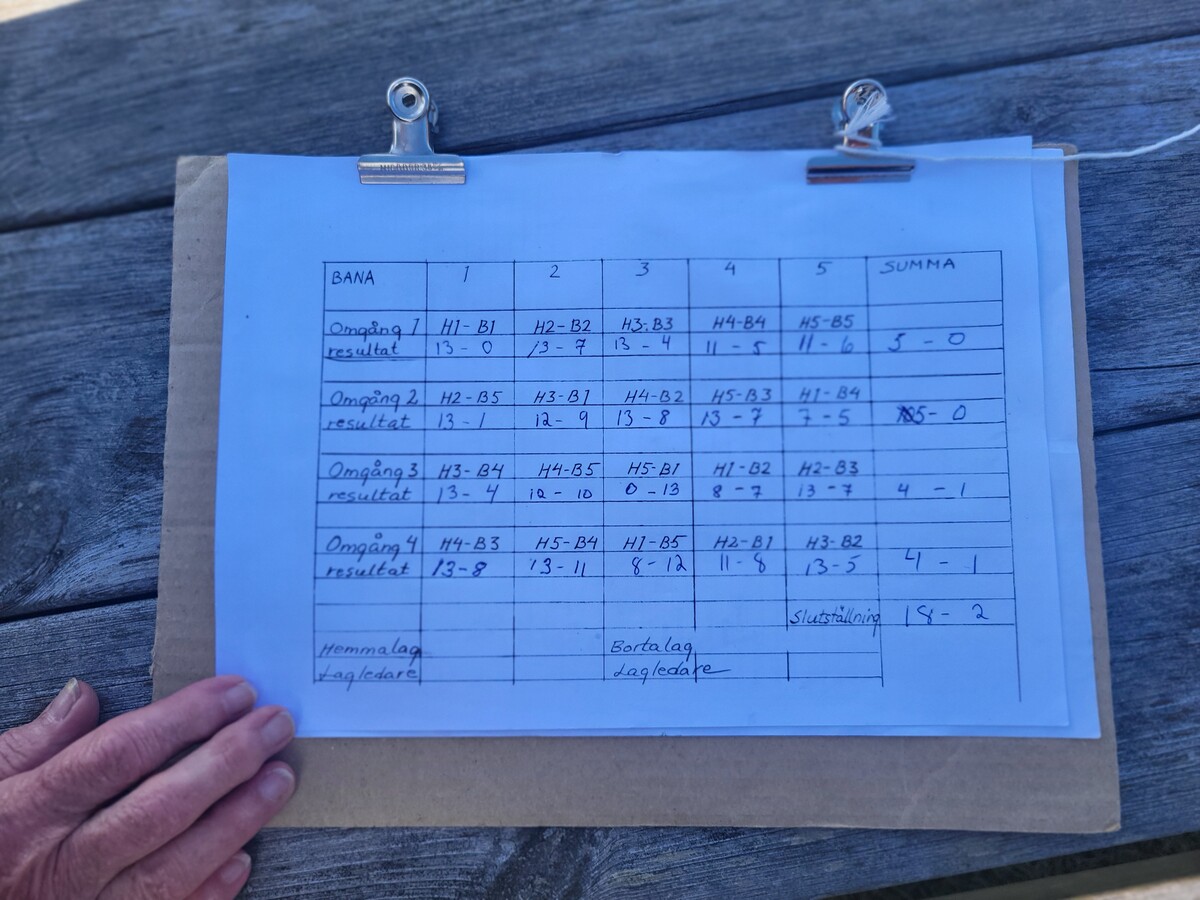 BANA 1 2 3 4 5 SUMMA
Omgång 1 H1-B1 H2-B2 H3-B3 H4-B4 H5-B5
resultat 13-0 13-7 13-4 11-5 11-6 5-0
Omgång 2 H2-B5 H3-B1 H4-B2 H5-B3 H1-B4
resultat 13-1 12-9 13-8 13-7 7-5 5-0
Omgång 3 H3-B4 H4-B5 H5-B1 H1-B2 H2-B3
resultat 13-4 12-10 0-13 8-7 13-7 4-1
Omgång 4 H4-B3 H5-B4 H1-B5 H2-B1 H3-B2
resultat 13-8 13-11 8-12 11-8 13-5 4-1
Slutställning 18-2
Hemmalag Bortalag
Lagledare Lagledare